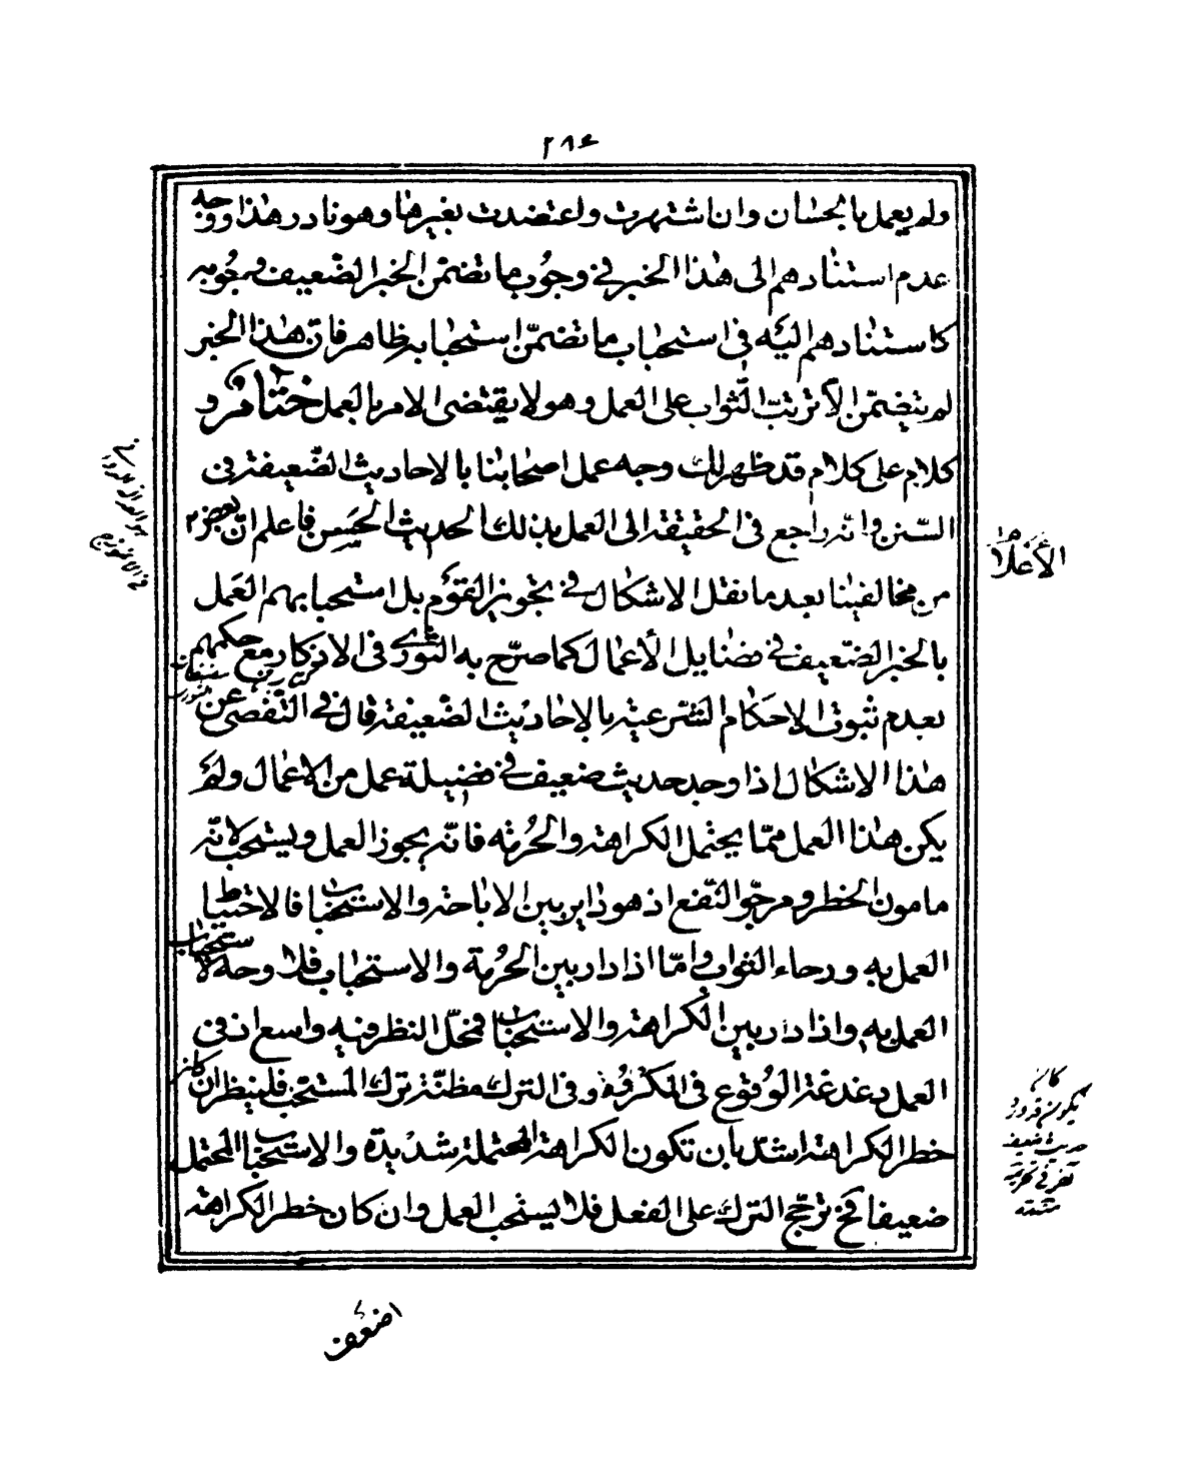 ٢٨٤
ولم يعمل بالحسان وان اشتهرت واعتضدت بغيرها وهو نادر هذا ووجه
عدم استنادهم الى هذا الخبر في وجوب ما تضمّن الخبر الضّعيف وجوبه
كاستنادهم اليه في استحباب ما تضمّن استحبابه ظاهر فانّ هذا الخبر
لم يتضمّن الا ترتّب الثواب على العمل وهو لا يقتضى الامر بالعمل ختام فرد
كلام على كلام قد ظهر لك وجه عمل اصحابنا بالاحاديث الضّعيفة في
السّنن وانّه راجع في الحقيقة الى العمل بذلك الحديث الحسن فاعلم انّ بعض
الأعلام
من مخالفينا بعد ما نقل الاشكال في تجويز القوم بل استحبابهم العمل
بالخبر الضّعيف في فضايل الأعمال كما صرّح به النّووى في الاذكار مع حكمهم
بعدم ثبوت الاحكام الشّرعيّة بالاحاديث الضّعيفة قال في التّفصّى عن
هذا الاشكال اذا وجد حديث ضعيف في فضيلة عمل من الاعمال ولم
يكن هذا العمل ممّا يحتمل الكراهة والحُرمة فانّه يجوز العمل ويستحب لانّه
مامون الخطر ومرجوّ النّفع اذ هو داير بين الاباحة والاستحباب فالاحتياط
العمل به ورجاء الثواب وامّا اذا دار بين الحُرمة والاستحباب فلا وجه لاستحباب
العمل به واذا دار بين الكراهة والاستحباب فمحلّ النظر فيه واسع اذ في
العمل دغدغة الوُقوع في المكرُوه وفى الترك مظنّة ترك المستحّب فلينظر ان كان
خطر الكراهة اشدّ بان تكون الكراهة المحتملة شديدة والاستحباب المحتمل
ضعيفا فح ترجّح الترك على الفعل فلا يستحب العمل وان كان خطر الكراهة
اضعف